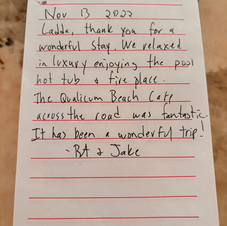 Nov 13 2022
Ladda, thank you for a
wonderful stay. We relaxed
in luxury enjoying the pool
hot tub & fire place.
The Qualicum Beach Cafe
across the road was fantastic.
It has been a wonderful trip!
- RA & Jake